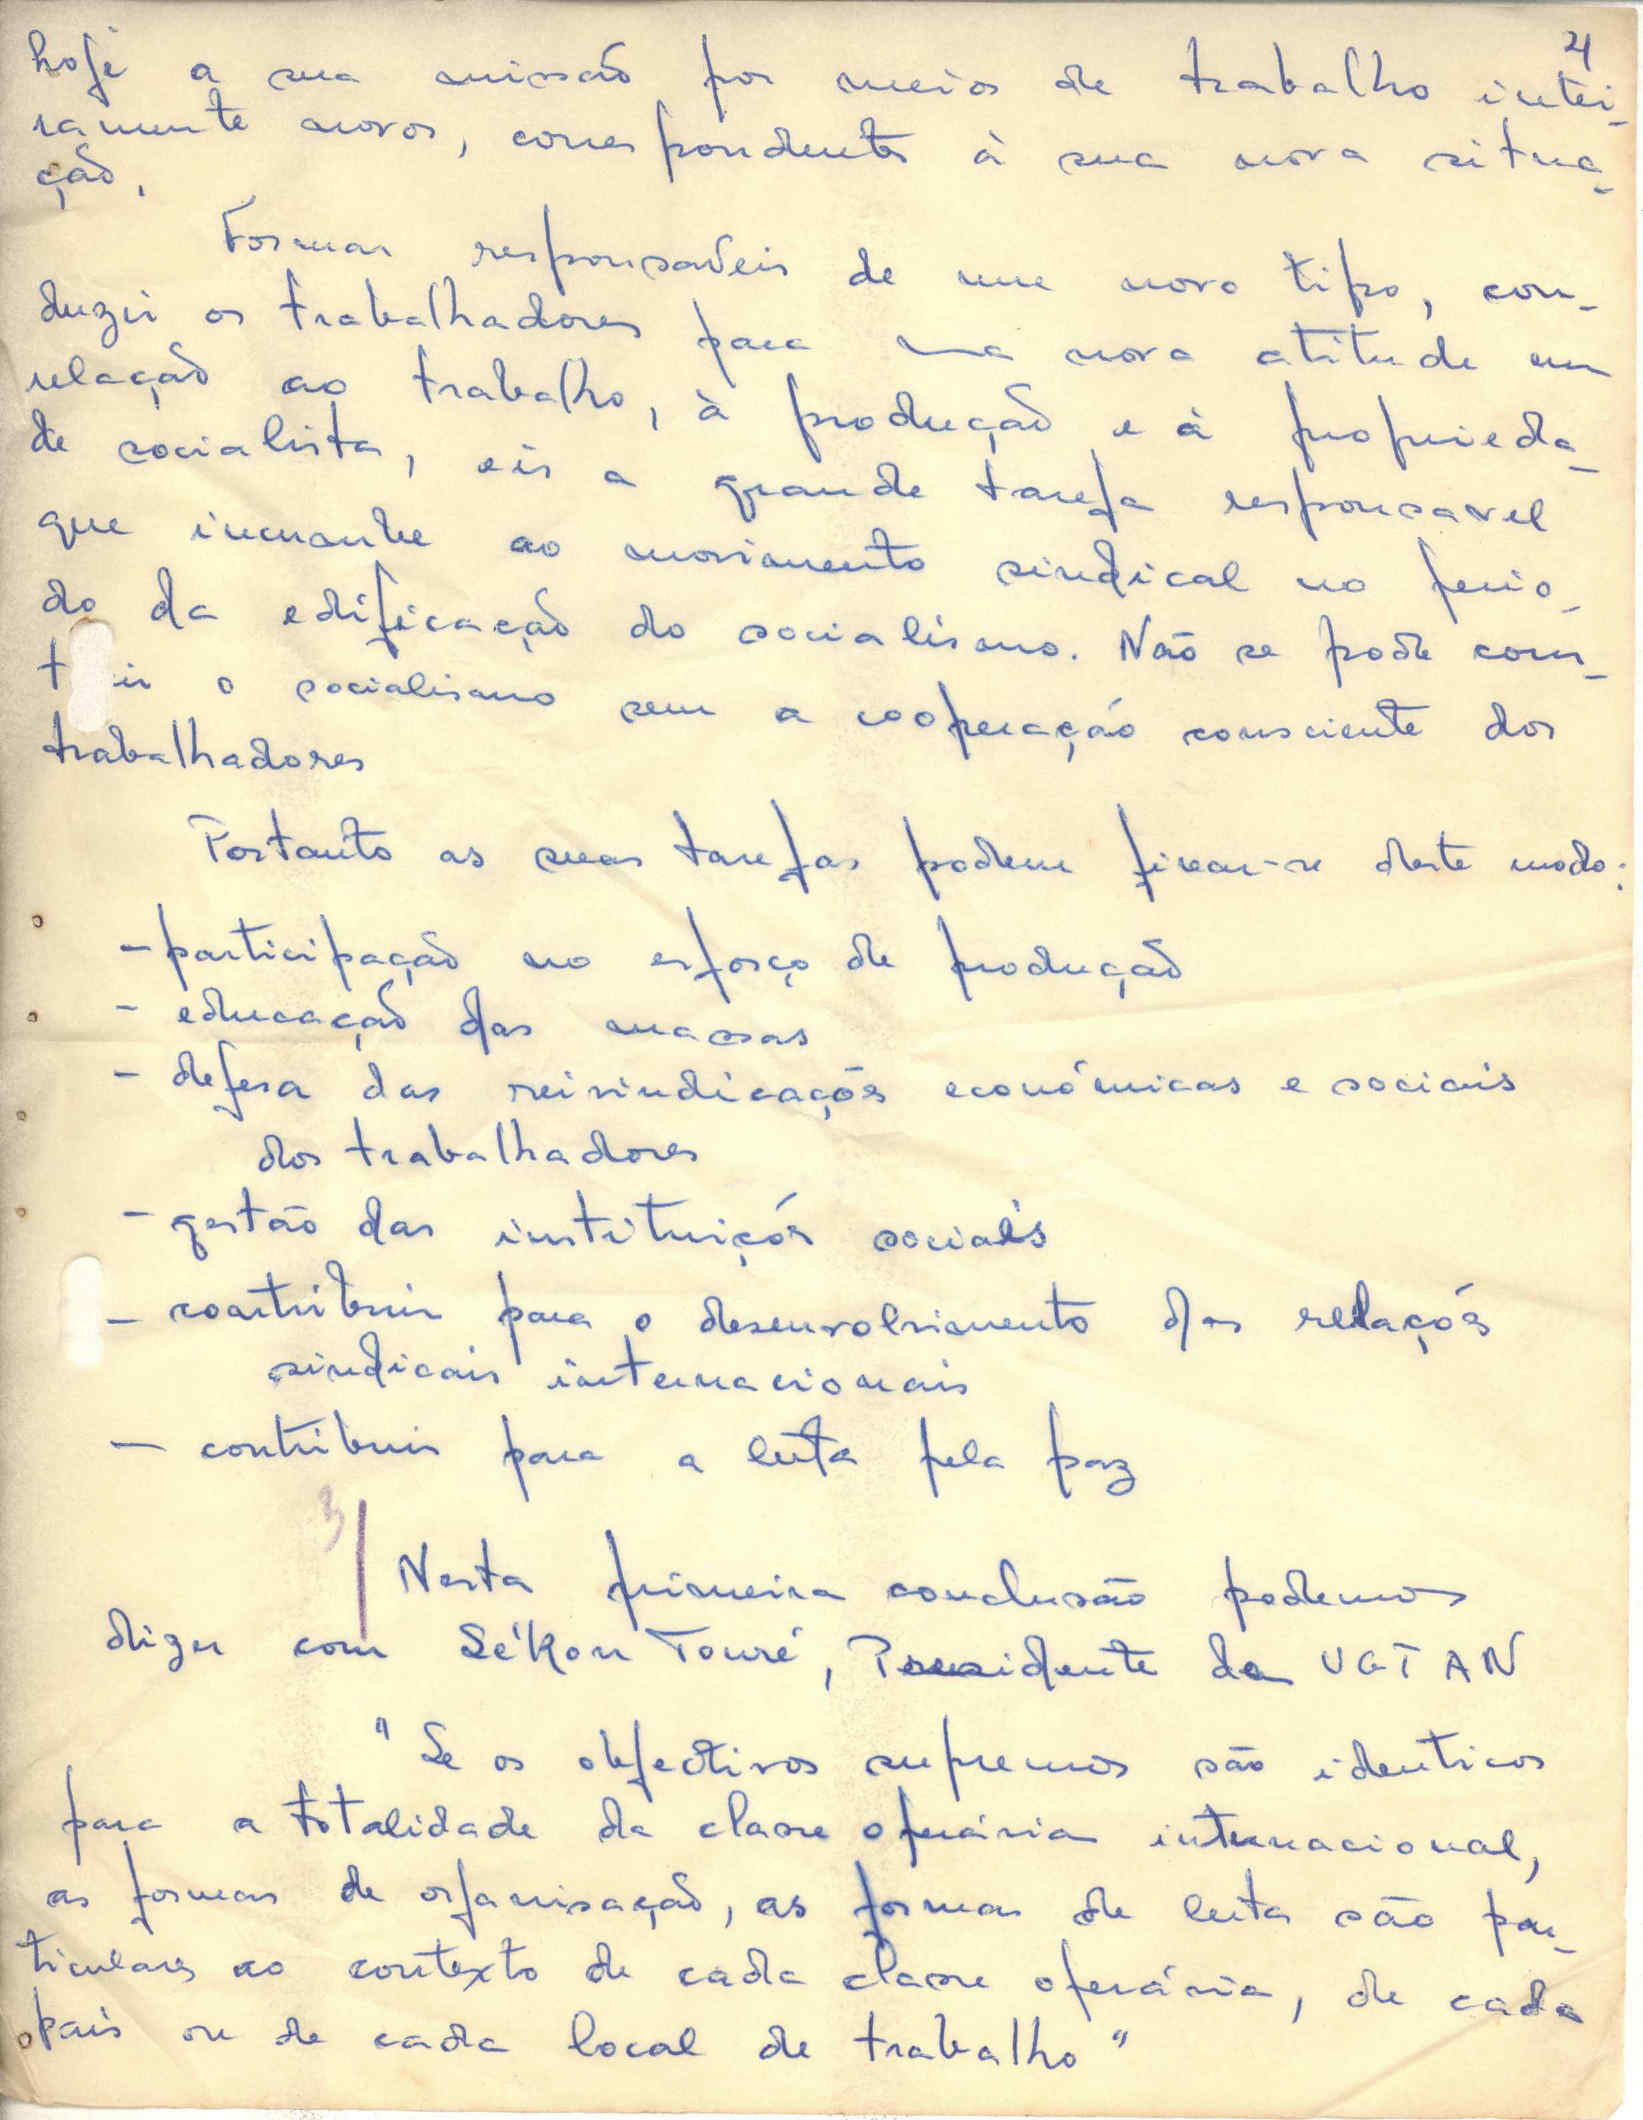 4
hoje a sua missão por meios de trabalho intei-
ramente novos, correspondentes à sua nova situa-
ção.
Formar responsaveis de um novo tipo, con-
duzir os trabalhadores para uma nova atitude em
relação ao trabalho, à produção e à proprieda-
de socialista, eis a grande tarefa responsavel
que incumbe ao movimento sindical no perio-
do da edificação do socialismo. Não se pode cons-
t ir o socialismo sem a cooperação consciente dos
trabalhadores
Portanto as suas tarefas podem fixar-se deste modo:
- participação no esforço de produção
- educação das massas
- defesa das reivindicações económicas e sociais
dos trabalhadores
- gestão das instituições sociais
- contribuir para o desenvolvimento das relações
sindicais internacionais
- contribuir para a luta pela paz
3
Nesta primeira conclusão podemos
dizer com Sékou Touré, Presidente da UGTAN
"Se os objectivos supremos são identicos
para a totalidade da classe operária internacional,
as formas de organisação, as formas de luta são par-
ticulares ao contexto de cada classe operária, de cada
pais ou de cada local de trabalho"